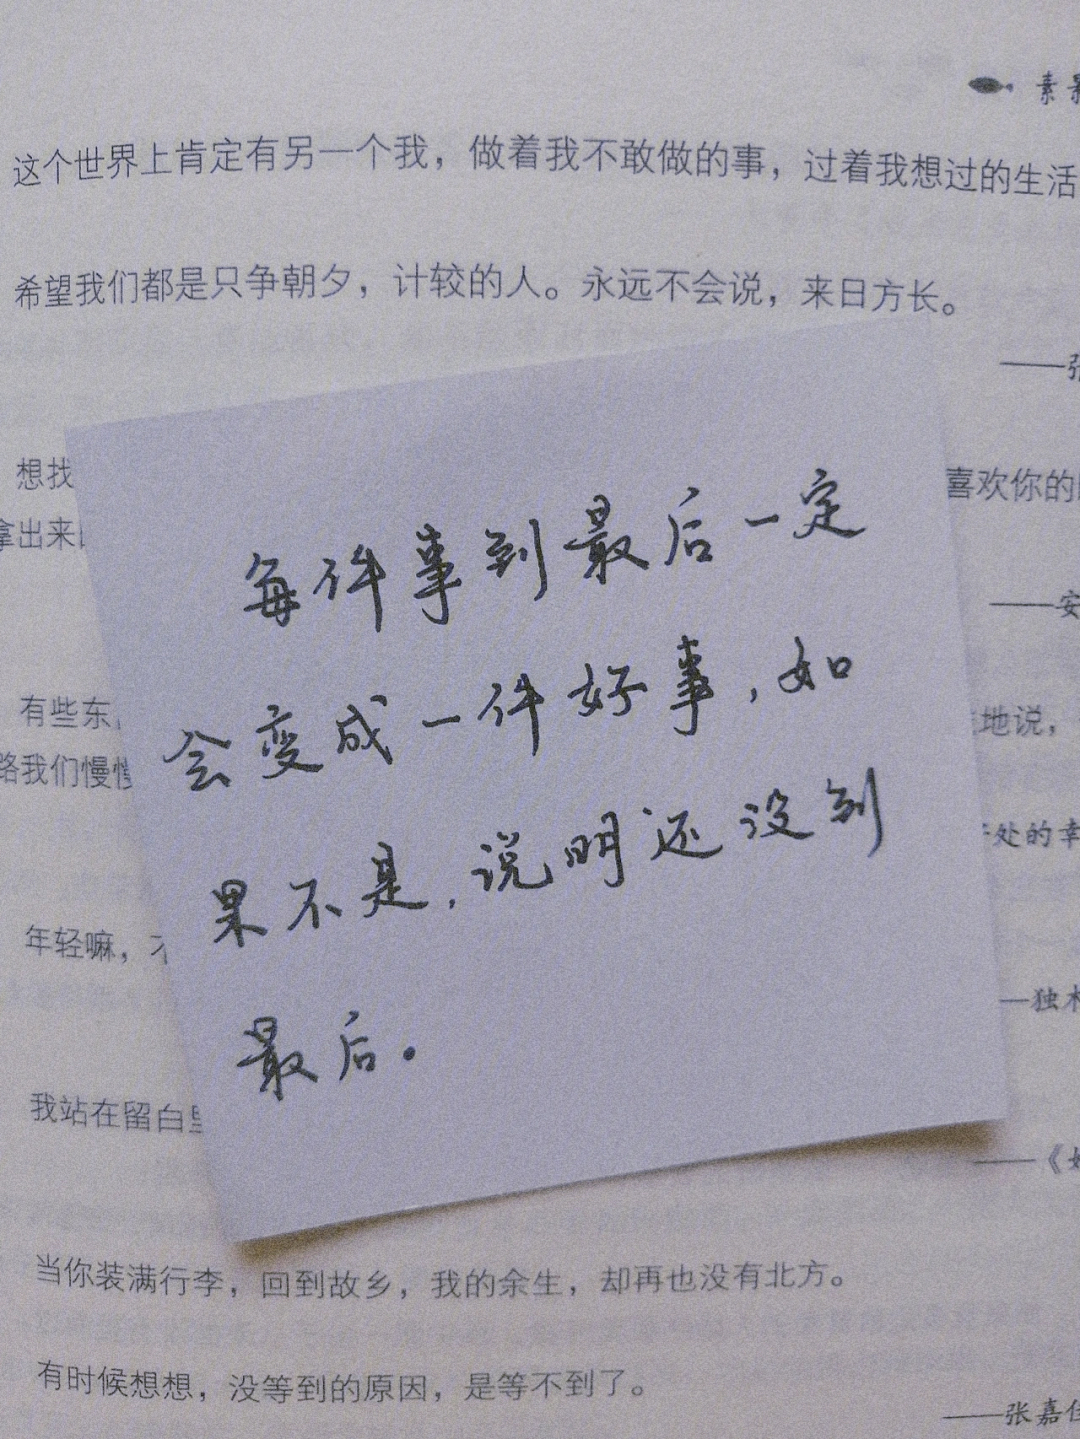 素
这个世界上肯定有另一个我，做着我不敢做的事，过着我想过的生活
希望我们都是只争朝夕，计较的人。永远不会说，来日方长。
——张
想找
喜欢你的
拿出来
——安
每件事到最后一定
会变成一件好事，如
果不是，说明还没到
最后。
有些东
地说，
路我们慢
处的幸
年轻嘛，
—独木
我站在留白
——《
当你装满行李，回到故乡，我的余生，却再也没有北方。
有时候想想，没等到的原因，是等不到了。
——张嘉佳